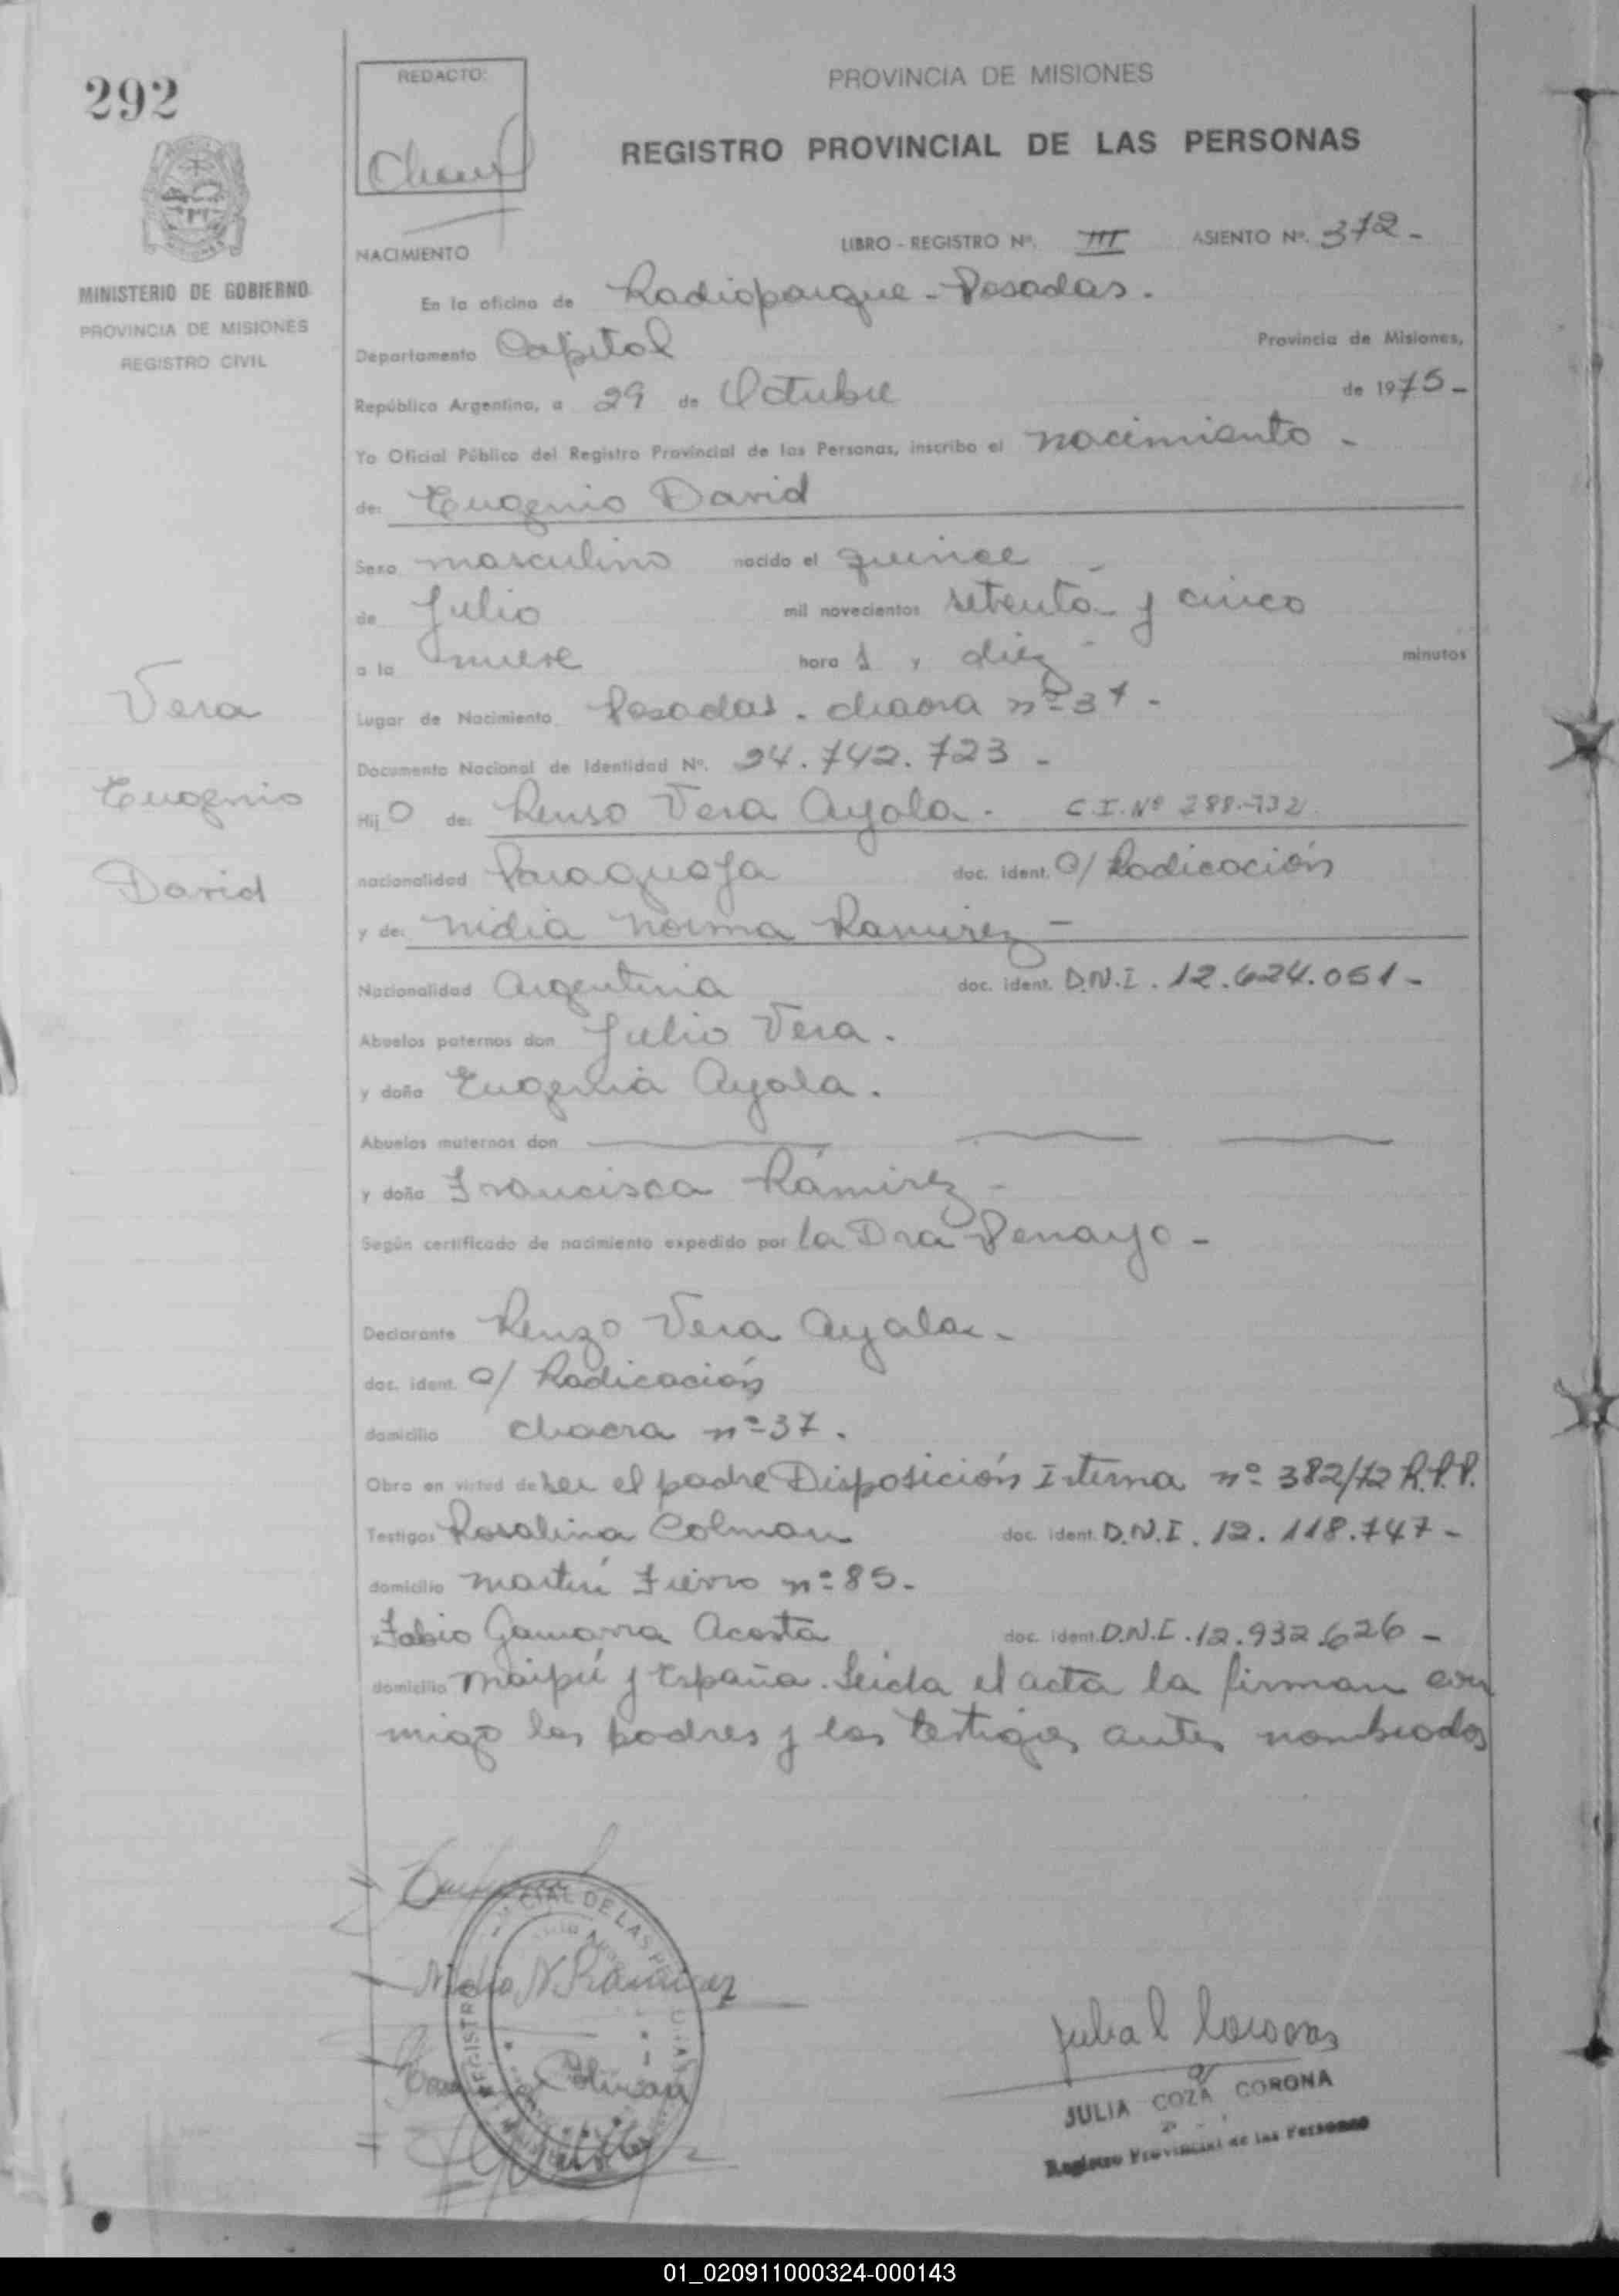 292
REDACTO:
PROVINCIA DE MISIONES
REGISTRO PROVINCIAL DE LAS PERSONAS
MINISTERIO DE GOBIERNO
PROVINCIA DE MISIONES
REGISTRO CIVIL
NACIMIENTO
LIBRO - REGISTRO Nº. III ASIENTO Nº. 372 -
En la oficina de Radioparque - Posadas.
Departamento Capital Provincia de Misiones,
República Argentina, a 29 de Octubre de 1975 -
Yo Oficial Público del Registro Provincial de las Personas, inscribo el nacimiento -
de: Eugenio David
Sexo masculino nacido el quince -
de Julio mil novecientos setenta y cinco
a la nueve hora s y diez minutos
Lugar de Nacimiento Posadas. chacra nº 37 -
Documento Nacional de Identidad Nº. 24.742.723 -
Hij o de: Renso Vera Ayala. C.I. Nº 288.732
nacionalidad Paraguaya doc. ident. C/ Radicación
y de: Nidia Norma Ramirez -
Nacionalidad Argentina doc. ident. D.N.I. 12.624.051 -
Abuelos paternos don Julio Vera.
y doña Eugenia Ayala.
Abuelos maternos don
y doña Francisca Ramirez -
Según certificado de nacimiento expedido por la Dra Penayo -
Declarante Renzo Vera Ayala -
doc. ident. C/ Radicación
domicilio chacra nº 37.
Obra en virtud de ser el padre Disposición Interna nº 382/72 R.P.P.
Testigos Rosalina Colman doc. ident. D.N.I. 12.118.747 -
domicilio Martín Fierro nº 85 -
Fabio Gamarra Acosta doc. ident. D.N.I. 12.932.626 -
domicilio Maipú y España. Leida el acta la firman con
migo los padres y los testigos antes nombrados
Vera
Eugenio
David
Nidia N Ramirez
Colman
JULIA COZA CORONA
Registro Provincial de las Personas
01_020911000324-000143